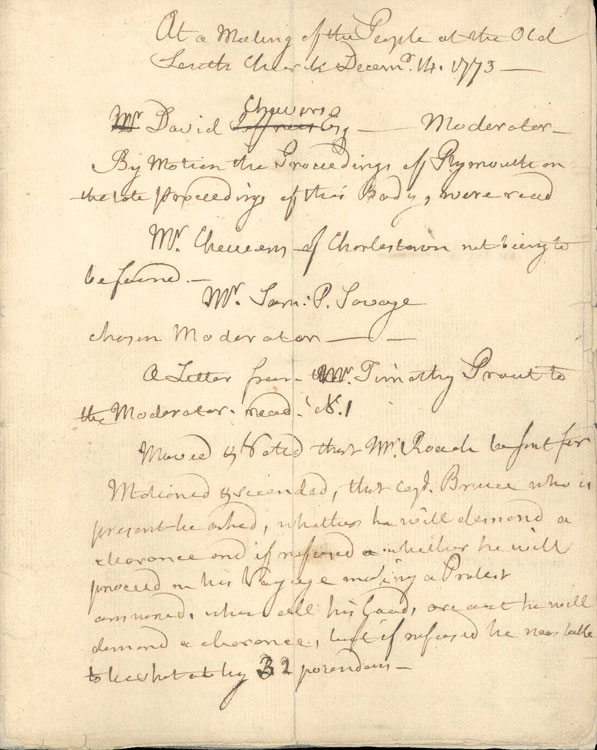 At a Meeting of the People at the Old
South Church Decemr. 14. 1773 —
Chevers
Mr David Jeffries Esq — Moderator —
By Motion the Proceedings of Plymouth on
the late proceedings of this Body, were read
Mr. Cheveers of Charlestown not being to
be found. —
Mr. Sam: P. Savage
chosen Moderator — —
A Letter from Mr. Timothy Prout to
the Moderator. read. N. 1
Moved & Voted that Mr. Roach be sent for
Motioned & seconded, that Capt. Bruce who is
present be asked, whether he will demand a
clearance and if refused whether he will
proceed on his Voyage making a Protest
answered, when all his Goods are out he will
demand a clearance, but if refused he
to be shot at by 32 pounders —